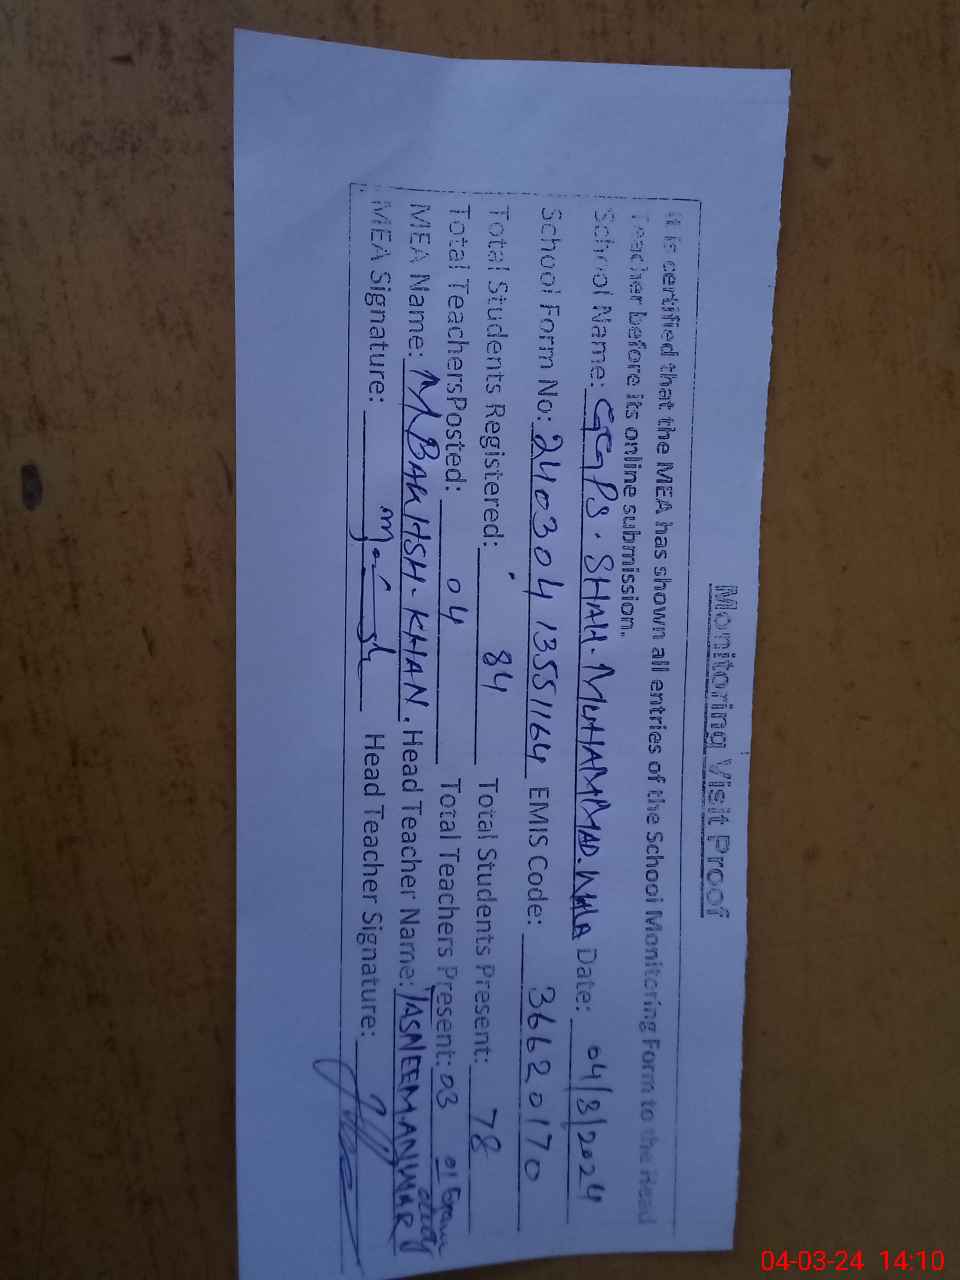 Monitoring Visit Proof
It is certified that the MEA has shown all entries of the School Monitoring Form to the Head
Teacher before its online submission.
School Name: GGPS. SHAH. MUHAMMAD. WALA Date: 04/3/2024
School Form No: 24030413551164 EMIS Code: 36620170
Total Students Registered: 84 Total Students Present: 78
Total TeachersPosted: 04 Total Teachers Present: 03 01 Exam duty
MEA Name: M BAKHSH-KHAN. Head Teacher Name: TASNEEM.ANWAR
MEA Signature: Head Teacher Signature:
04-03-24 14:10